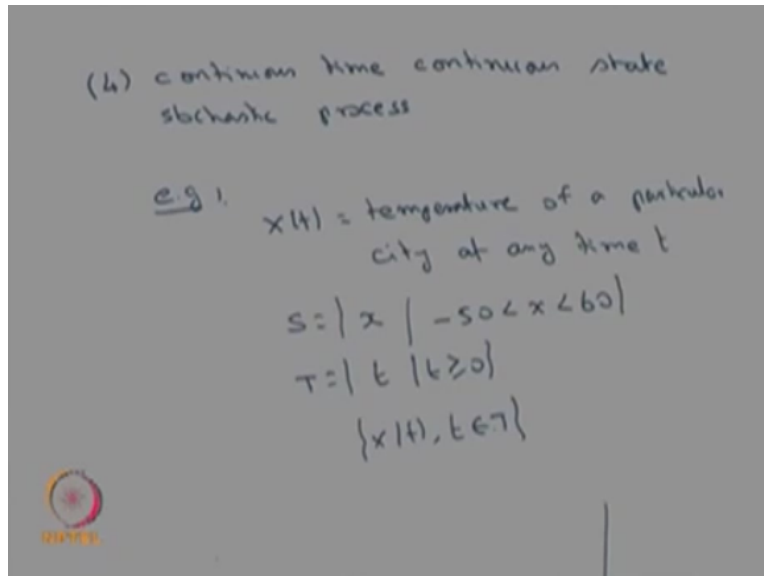 (4) continuous time continuous state
stochastic process
e.g 1.
x(t) = temperature of a particular
city at any time t
S = {x | -50 < x < 60}
T = {t | t ≥ 0}
{x(t), t ∈ T}
NPTEL